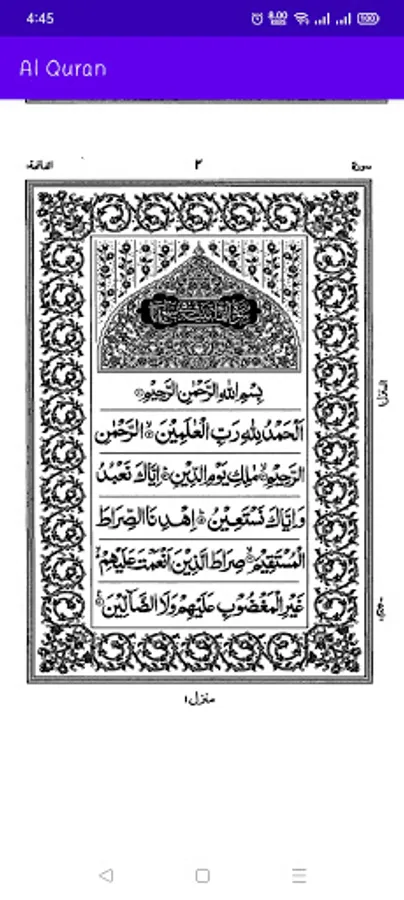 4:45
8.00
100
Al Quran
سورة ٢ الفاتحة
بِسْمِ اللهِ الرَّحْمٰنِ الرَّحِيْمِ
اَلْحَمْدُ لِلّٰهِ رَبِّ الْعٰلَمِيْنَ الرَّحْمٰنِ
الرَّحِيْمِ مٰلِكِ يَوْمِ الدِّيْنِ اِيَّاكَ نَعْبُدُ
وَاِيَّاكَ نَسْتَعِيْنُ اِهْدِنَا الصِّرَاطَ
الْمُسْتَقِيْمَ صِرَاطَ الَّذِيْنَ اَنْعَمْتَ عَلَيْهِمْ
غَيْرِ الْمَغْضُوْبِ عَلَيْهِمْ وَلَا الضَّآلِّيْنَ
منزل ١